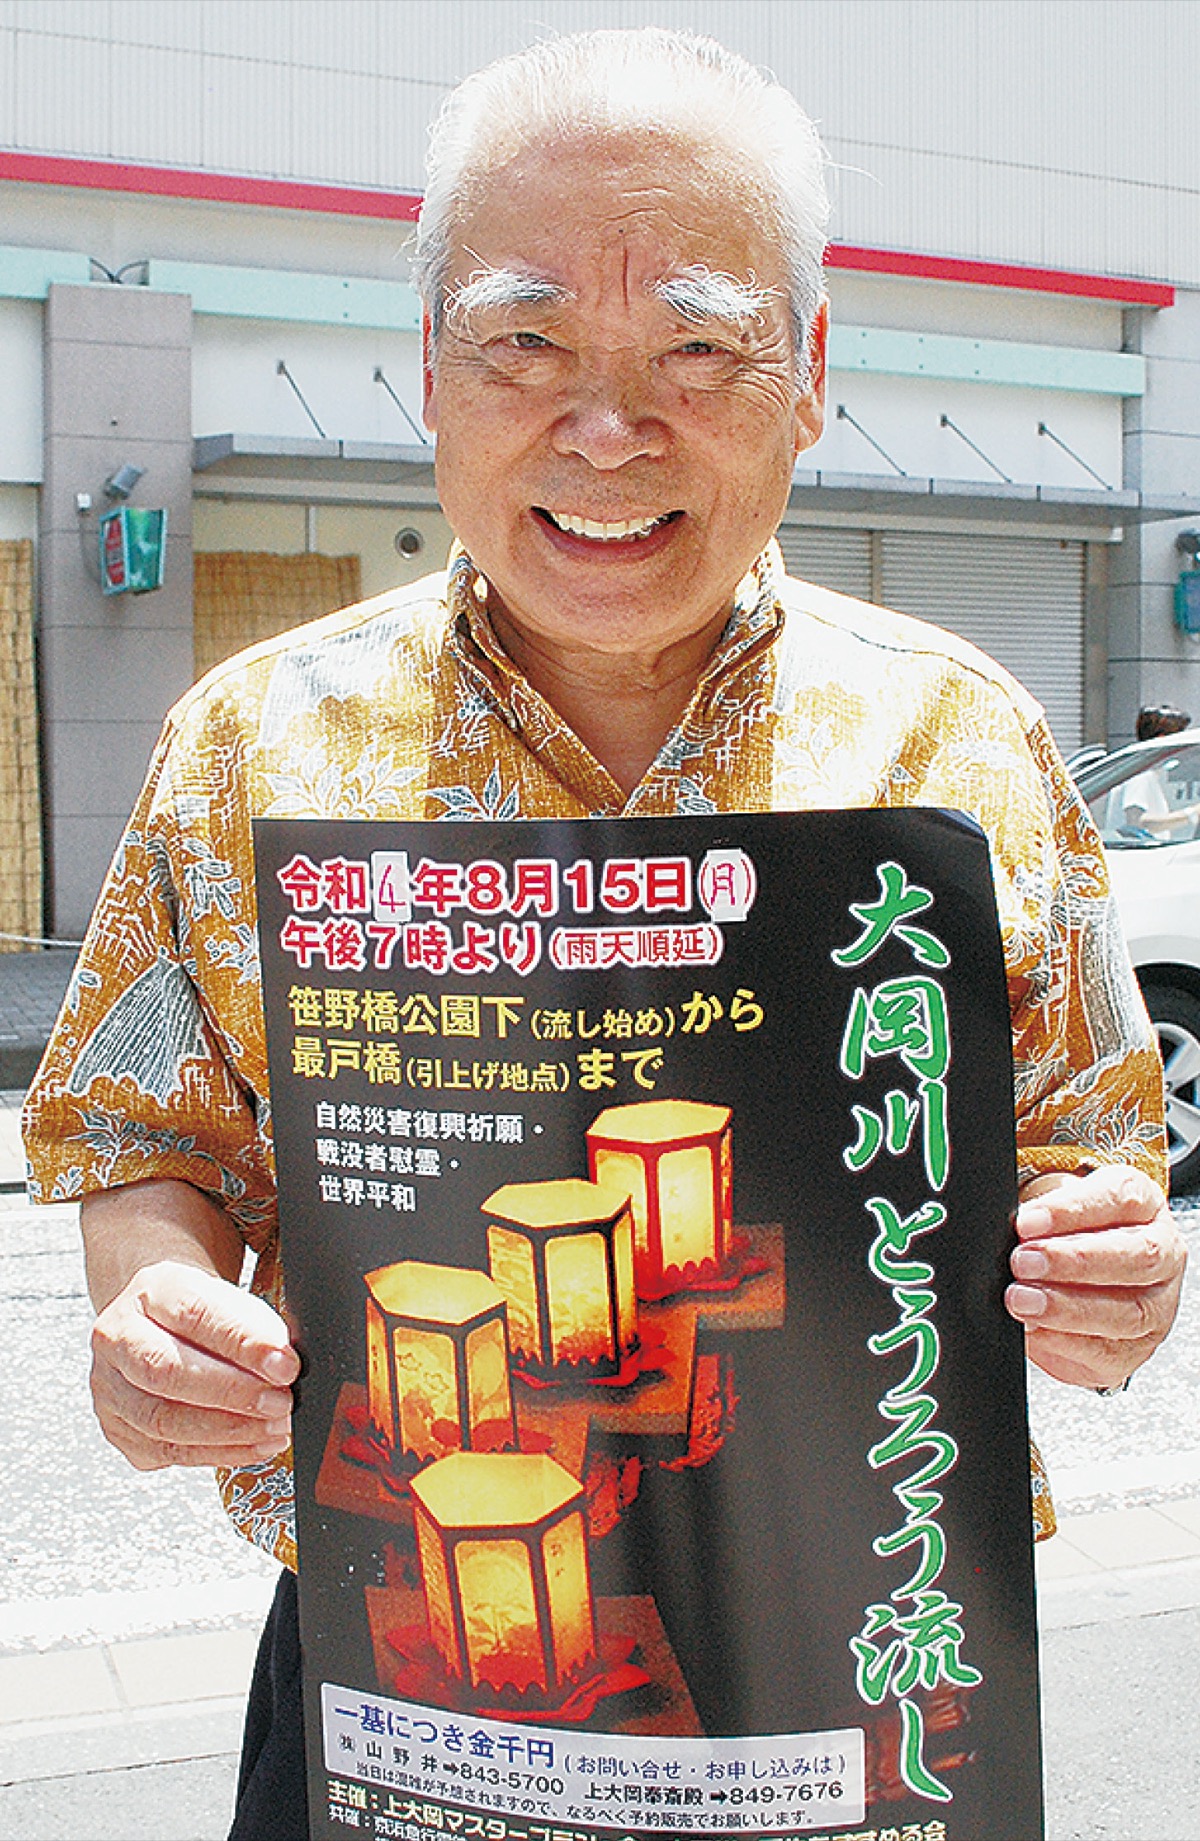 大岡川とうろう流し
令和4年8月15日(月)
午後7時より(雨天順延)
笹野橋公園下(流し始め)から
最戸橋(引上げ地点)まで
自然災害復興祈願・
戦没者慰霊・
世界平和
一基につき金千円(お問い合せ・お申し込みは)
㈱山野井➡843-5700 上大岡奉斎殿➡849-7676
当日は混雑が予想されますので、なるべく予約販売でお願いします。
主催:上大岡マスタープラン
共催:京浜急行電